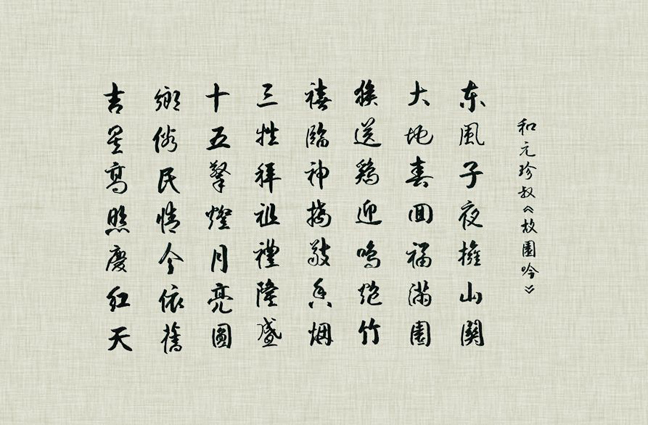 和元珍叔《故園吟》
东風子夜擁山關
大地春回福滿園
猴送鷄迎鳴炮竹
禧臨神揚敬香烟
三牲拜祖禮隆盛
十五擎燈月亮圓
鄉俗民情今依舊
吉星高照慶紅天